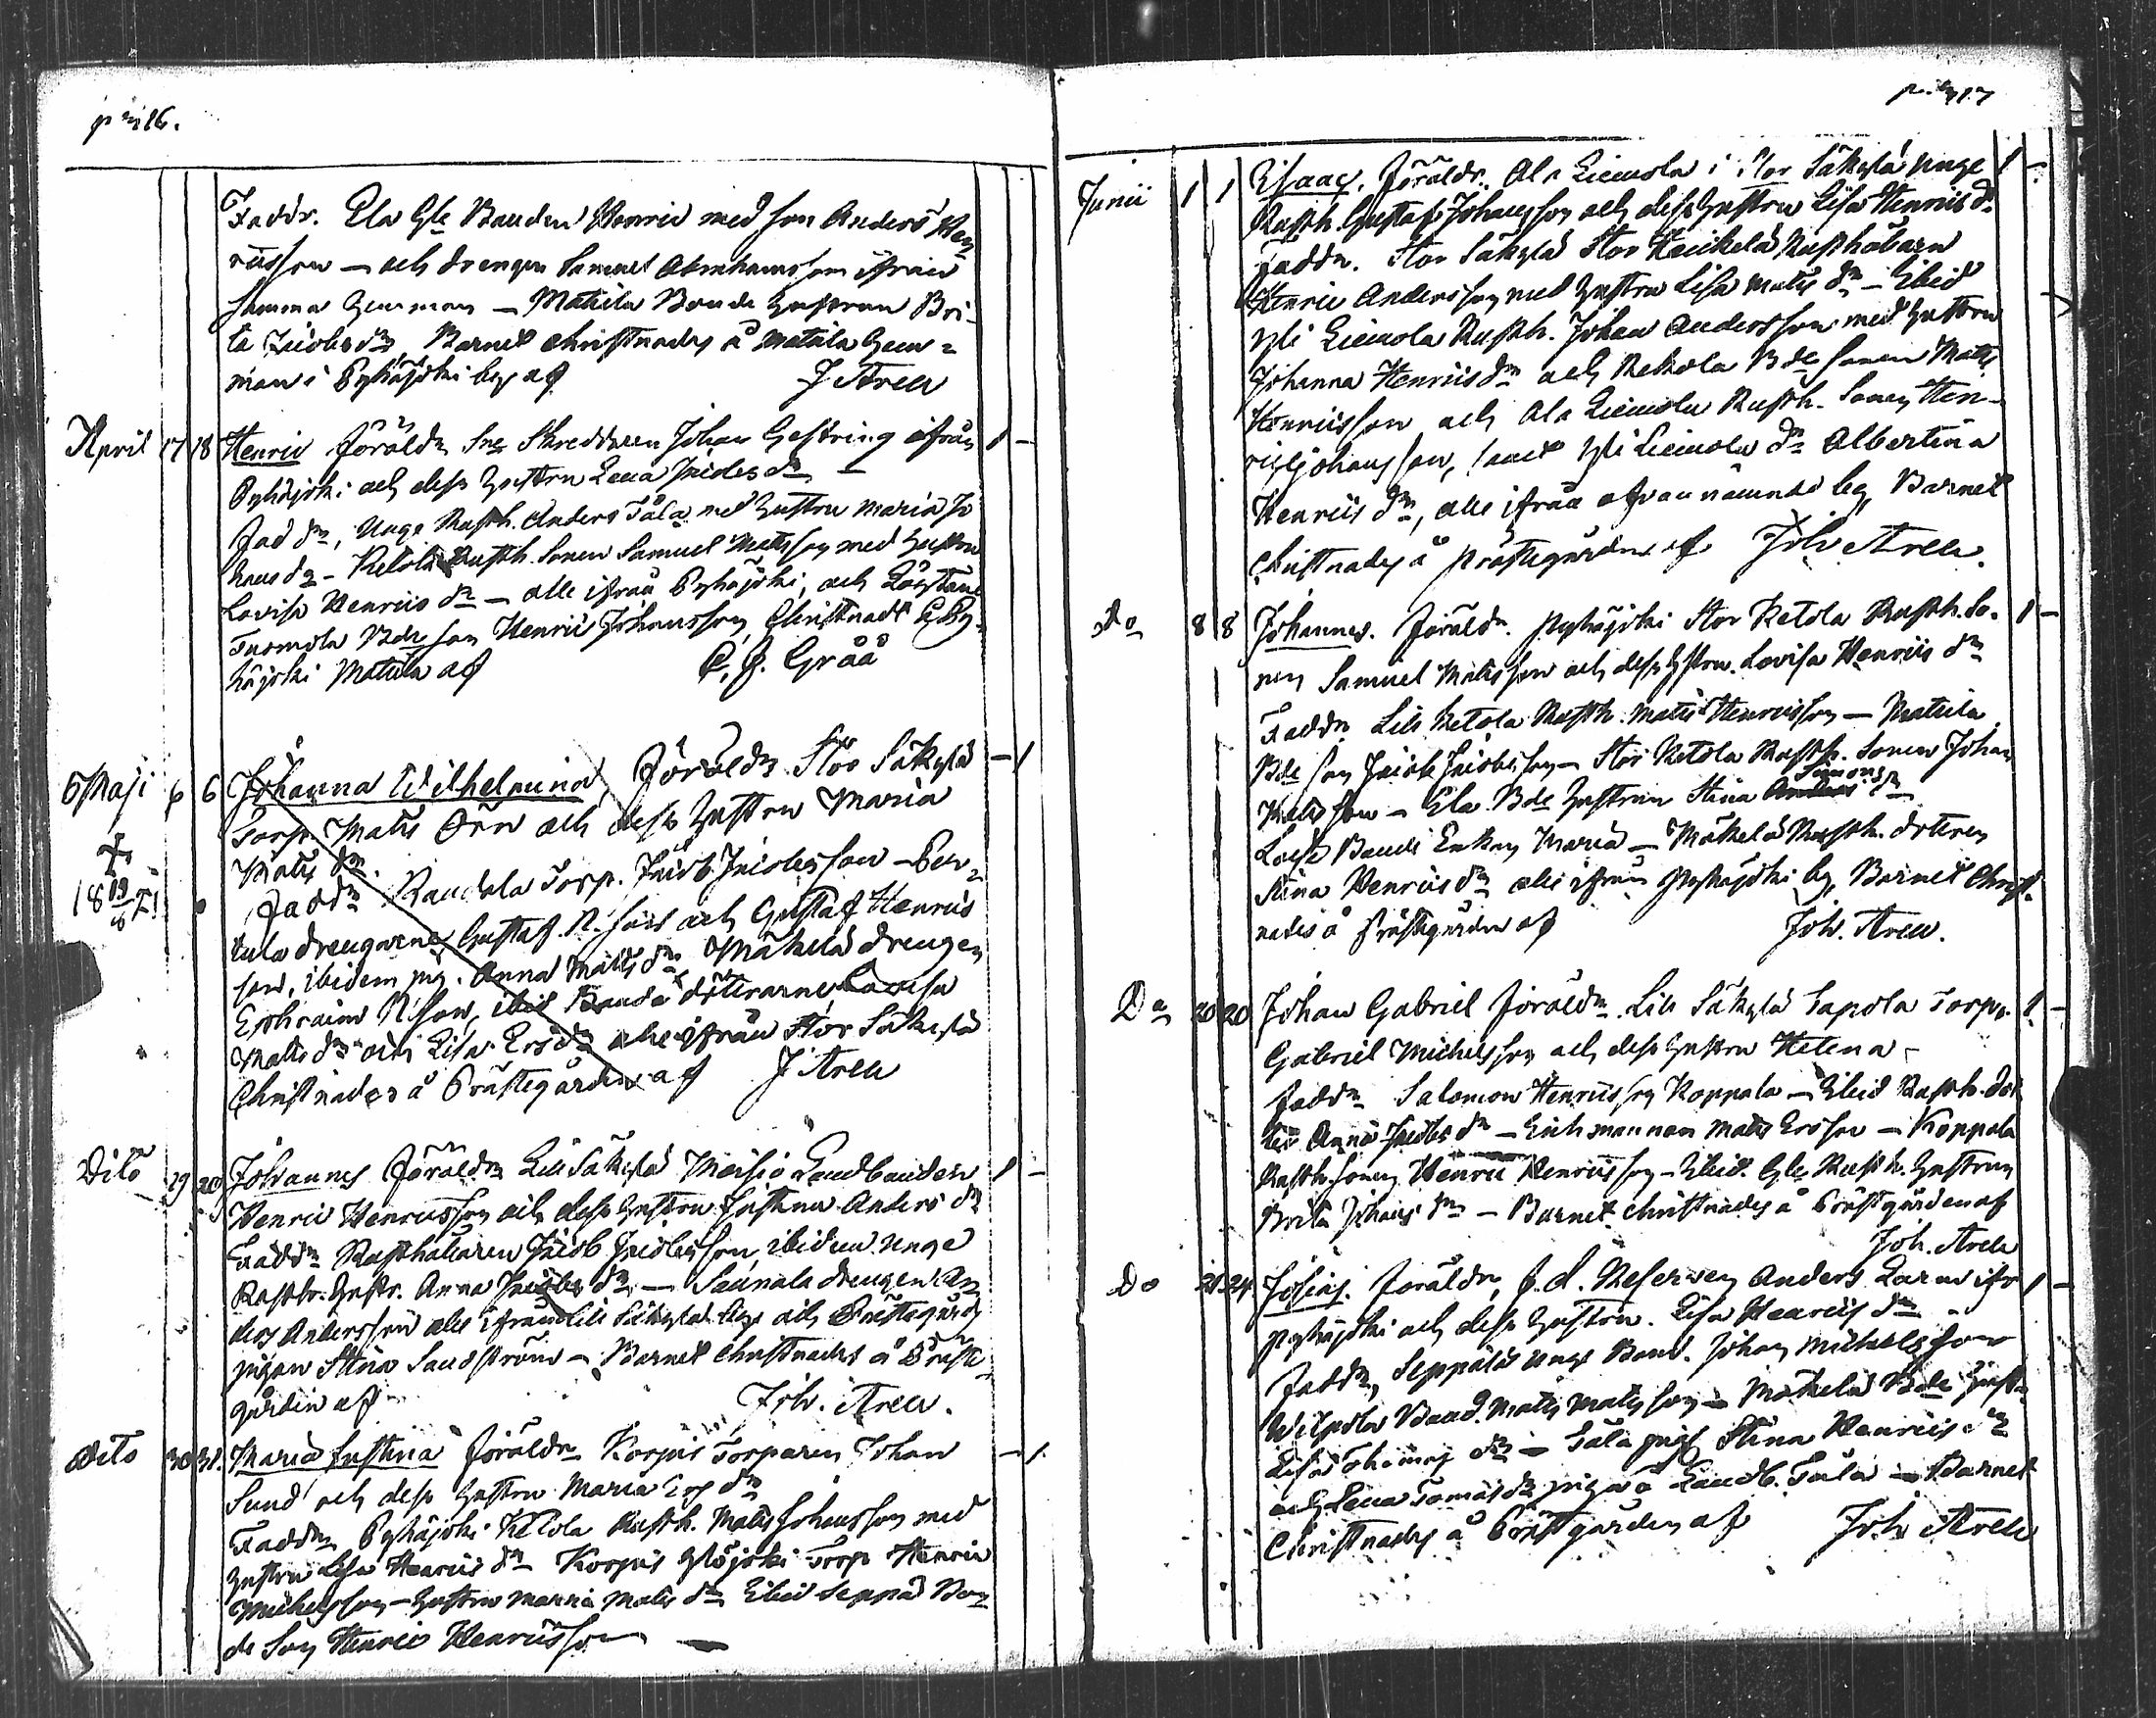 Faddr. Ela Gle Bonden Henric med son Anders Hen
ricsson — och drengen Samuel Abrahamsson ifrån
samma hemman — Matila Bonde hustrun Bri-
ta Jacobs dr Barnet christnades å Matula hem=
man i Pyhäjoki by af J Aren
April 17 18 Henric Föräldr Sne Skreddaren Johan Gestring ifrån 1 -
Pyhäjoki och dess hustru Lena Jacobs dr
Fad dr, Unge Rusth. Anders Tala med hustru Maria Jo
hans dr - Ketola Rusth. Sonen Samuel Matsson med hustru
Lovisa Henrics dr — alle ifrån Pyhäjoki, och
Tuomola Bde son Henric Johansson Christnadt i Py-
häjoki Matula af C. J. Gråå
6 Maji 6 6 Johanna Wilhelmina Föräldr Stor Säkylä - 1
Torp. Mats Örn och dess hustru Maria
Mats dr.
18 19/6 21
Fadd dr Raudala Torp. Jacob Jacobsson -
tula drengarne Gustaf N. son och Gustaf Henrics
son, ibidem pig. Anna Mats dr Mäkelä drengen
Ephraim N son, ibid Bonde dötrarne Lovisa
Mats dr och Lisa Ers dr alle ifrån Stor Säkylä
Christnades å Prästegården af J Aren
Dito 29 29 Johannes Föräldr Lill Säkylä Moisio Landbonden 1 -
Henric Henricsson och dess hustru Justina Anders dr
Faddr Rusthållaren Jacob Jacobsson, ibidem unge
Rusth. Hustr. Anna Jacobs dr — Saunala drengen An
ders Andersson alle ifrån Lill Säkylä by och Prästegårds
pigan Stina Sandström — Barnet christnades å Präste
gården af Joh. Aren.
Dito 30 31. Maria Justina Föräldr Korpis Torparen Johan - 1.
Sund och dess hustru Maria Ers dr
Faddr Pyhäjoki Ketola Rusth. Mats Johansson med
hustru Lisa Henrics dr Korpis Ylöjoki Torp Henric
Michelsson — hustru Maria Mats dr Ibid Seppä Bon
de son Henric Henricsson —
Junii 1 1 Isaac. Föräldr. Ala Liemola i Stor Säkylä unge 1 -
Rusth. Gustaf Johansson och dess hustru Lisa Henrics dr
Faddr. Stor Säkylä Stor Heikelä Rusthållaren
Henric Andersson med hustru Lisa Mats dr — Ibid
Yli Liemola Rusth. Johan Andersson med hustru
Johanna Henrics dr och Rekola Bde sonen Mats
Henricsson och Ala Liemola Rusth. Sonen Hen-
ric Johansson, samt Yli Liemola dr Albertina
Henrics dr, alle ifrån ofvannämnde by, Barnet
Christnades å prästegården af Joh Aren.
Do 8 8 Johannes. Föräldr. Pyhäjoki Stor Ketola Rusth. So- 1 -
nen Samuel Matsson och dess hstru. Lovisa Henrics dr
Faddr Lill Ketola Rusth. Mats Henricsson — Matula
Bde son Jacob Jacobsson — Stor Ketola Rusth. Sonen Johan
Matsson — Ela Bde hustrun Stina Simons dr
Bonde Enkan Maria — Mäkelä Rusth. dotren
Stina Henrics dr alle ifrån Pyhäjoki by, Barnet Christ-
nades å Prästgården af Joh. Aren.
Do 20 20 Johan Gabriel Föräldr. Lill Säkylä Tapola Torp. 1 -
Gabriel Michelsson och dess hustru Helena -
Faddr Salomon Henricsson Koppala — Ibid Rusth. dot
ter Anna Jacobs dr — Enkmannen Mats Ersson — Koppala
Rusth. sonen Henric Henricsson — Ibid. Gle Rusth. hustrun
Brita Johans dr — Barnet christnades å Prästgården af
Joh. Aren
Do 21 24 Josias. Föräldr, f. d. Reserven Anders Larm ifr 1 -
Pyhäjoki och dess hustru. Lisa Henrics dr
Faddr, Seppälä unge Bond. Johan Michelsson
Wilpola Bond. Mats Matsson — Mäkelä Bde hust.
Lisa Thomas dr — Tala pig Stina Henrics dr
och Lena Tomas dr piga å Landb. Tala — Barnet
Christnades å Prästgården af Joh Aren